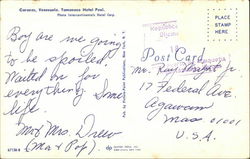 Caracas, Venezuela. Tamanaco Hotel Pool.
Photo Intercontinental Hotels Corp.
Boy are we going
to be spoiled!
Waited on for
everything. Some
life.
Mr & Mrs. Drew
(Ma & Pop)
Post Card
PLACE
STAMP
HERE
Mr. Ray Draper Jr
17 Federal Ave
Agawam
Mass 01001
U.S.A.